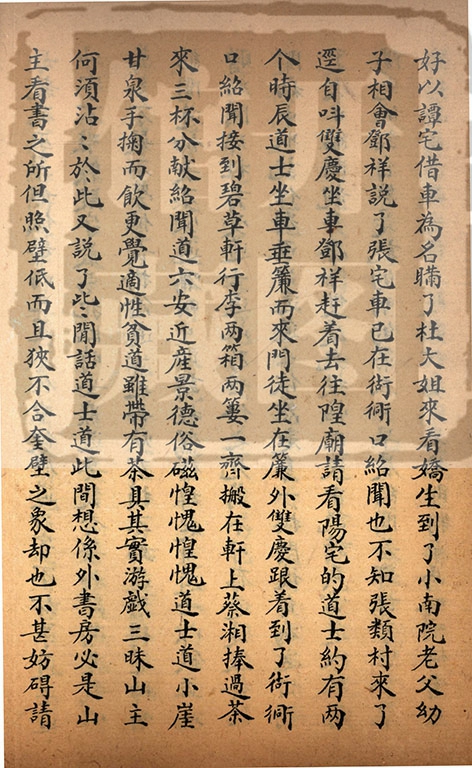 好以譚宅借車為名瞞了杜大姐來看嬌生到了小南院老父幼
子相會鄧祥說了張宅車已在衚衕口紹聞也不知張類村來了
逕自叫雙慶坐車鄧祥赶着去往隍廟請看陽宅的道士約有两
个時辰道士坐車垂簾而來門徒坐在簾外雙慶跟着到了衚衕
口紹聞接到碧草軒行李两箱两簍一齊搬在軒上蔡湘捧過茶
來三杯分献紹聞道六安近産景德俗磁惶愧惶愧道士道小崖
甘泉手掬而飲更覺適性貧道雖帶有茶具其實游戲三昧山主
何須沾沾於此又説了些閒話道士道此間想係外書房必是山
主看書之所但照壁低而且狹不合奎壁之象却也不甚妨碍請